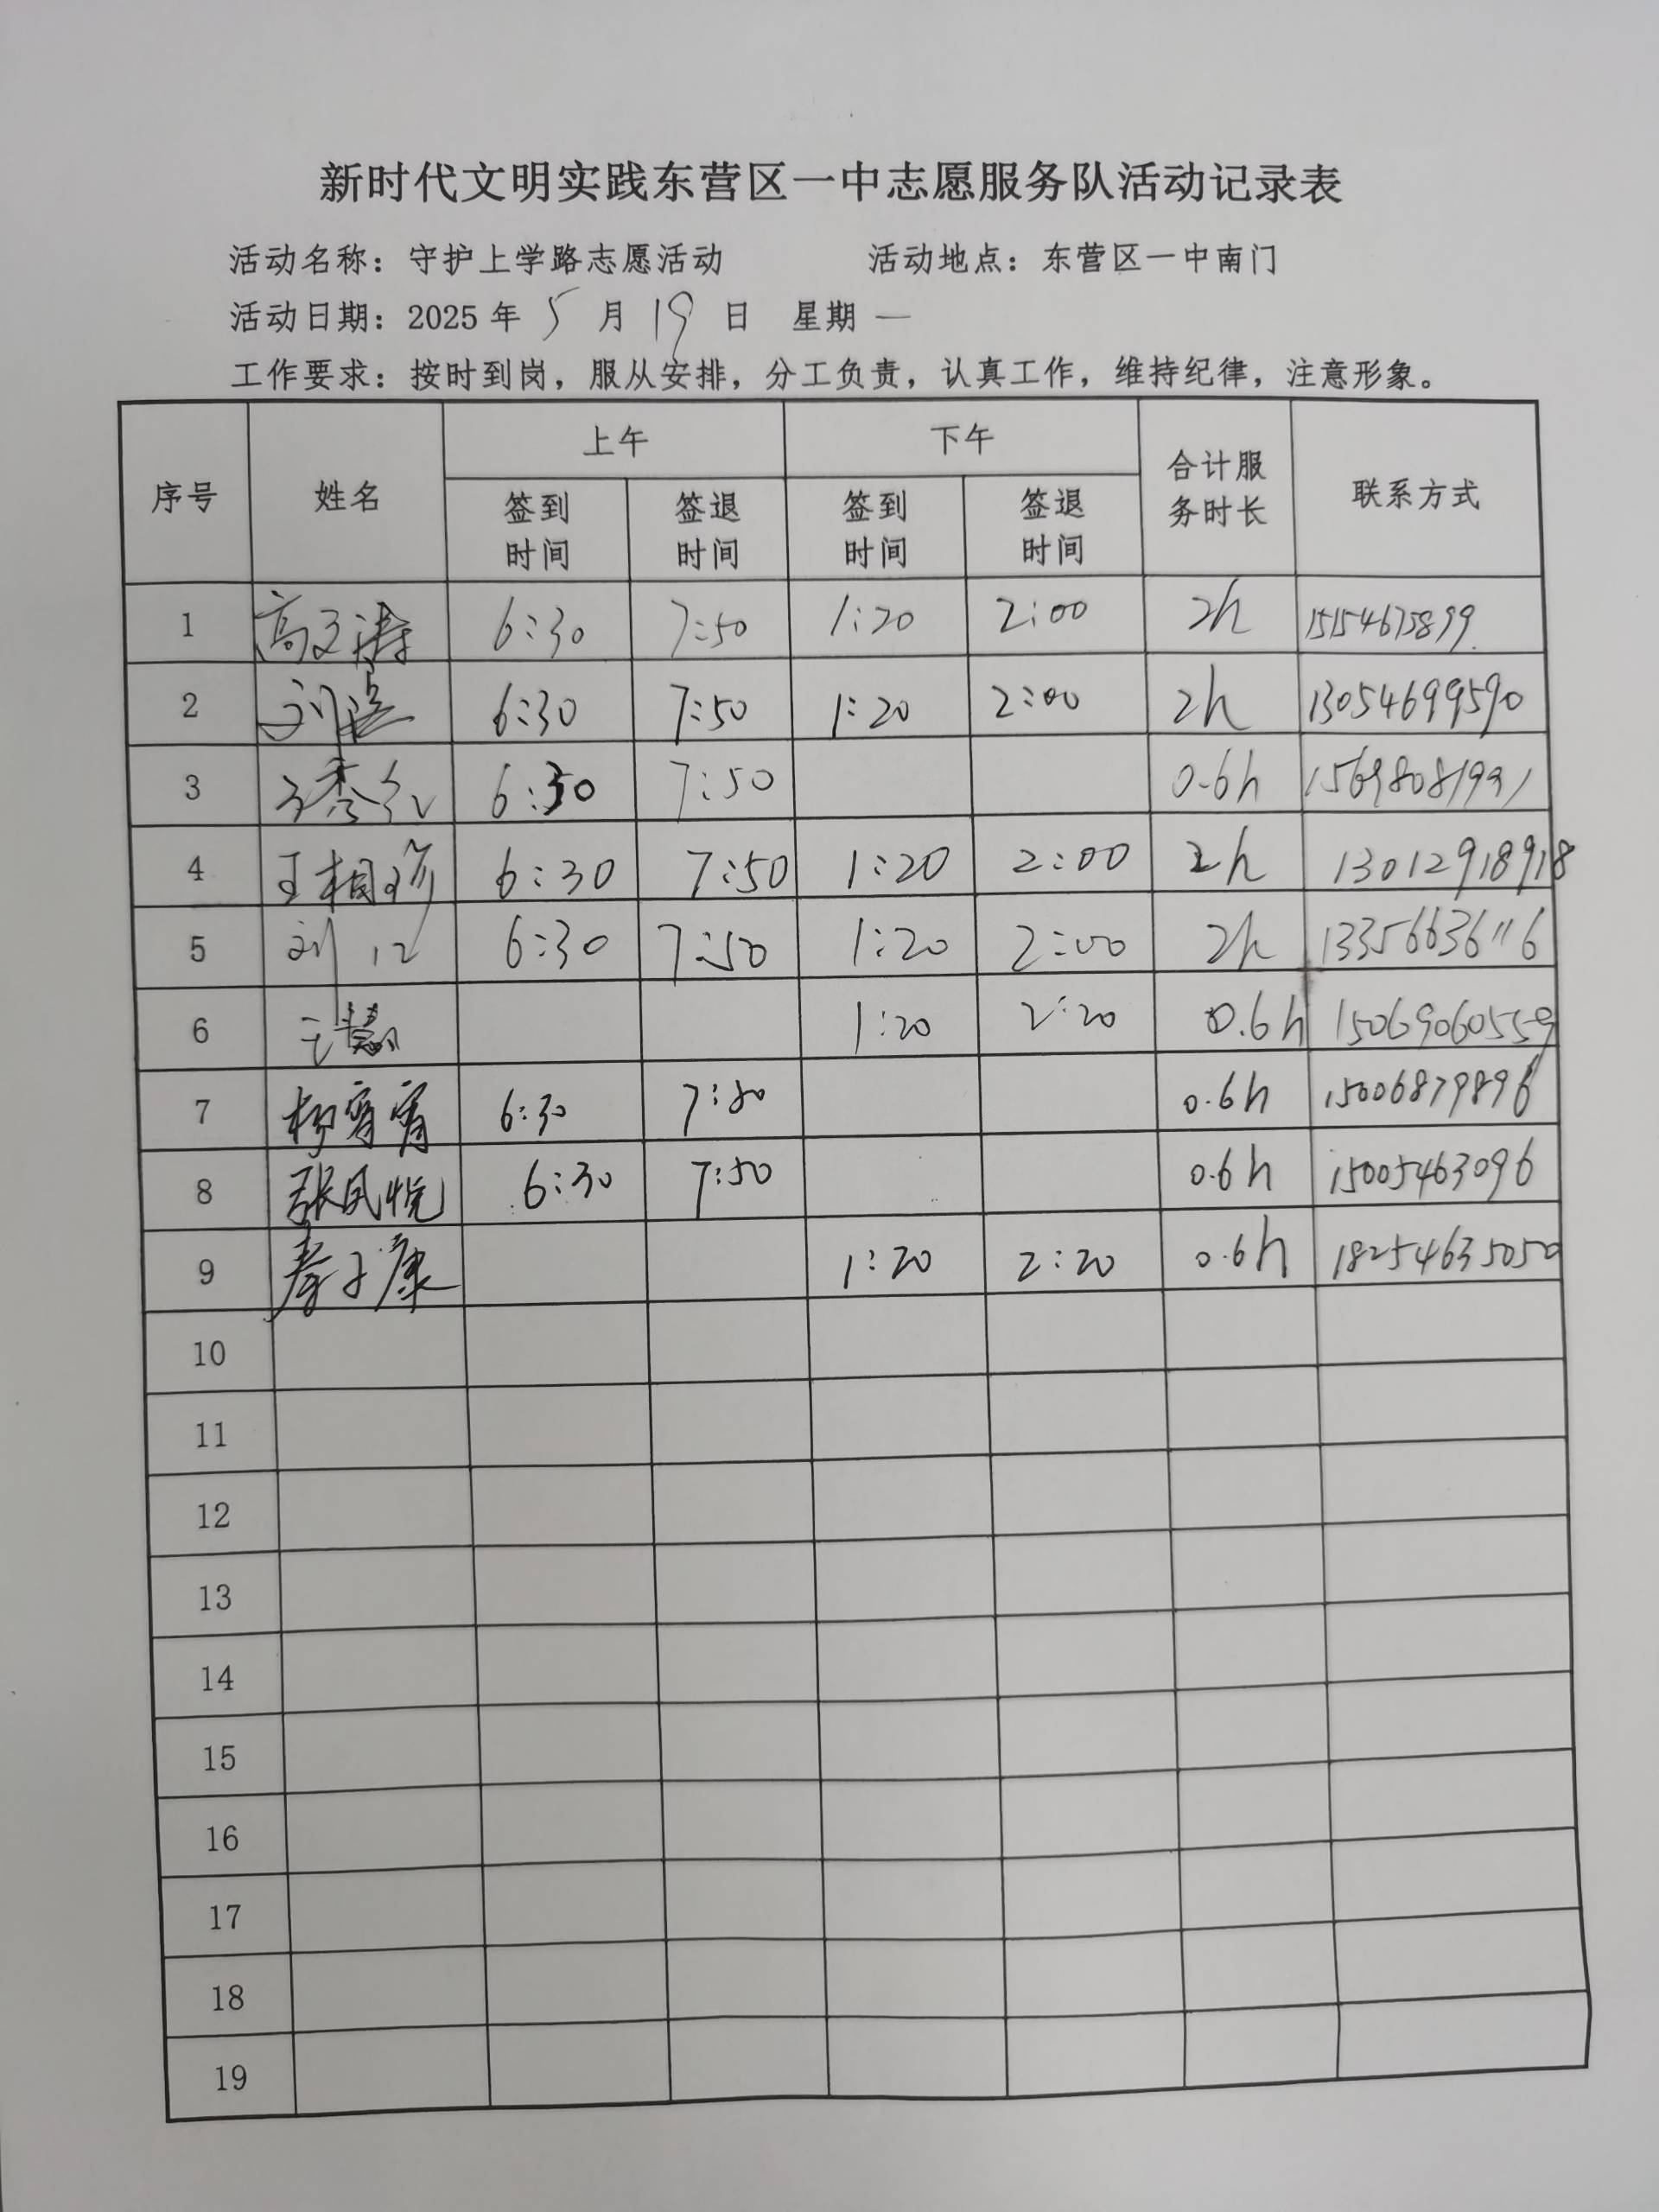 新时代文明实践东营区一中志愿服务队活动记录表
活动名称：守护上学路志愿活动 活动地点：东营区一中南门
活动日期：2025年 5 月 19 日 星期 一
工作要求：按时到岗，服从安排，分工负责，认真工作，维持纪律，注意形象。
序号 姓名 上午 下午 合计服务时长 联系方式
签到时间 签退时间 签到时间 签退时间
1 高文涛 6:30 7:50 1:20 2:00 2h
2 刘 6:30 7:50 1:20 2:00 2h 13054699590
3 秀 6:30 7:50 0.6h 15698081931
4 王相 6:30 7:50 1:20 2:00 2h 13012918918
5 刘 6:30 7:50 1:20 2:00 2h 13356636116
6 王慧 1:20 2:20 0.6h 15069060559
7 杨霄霄 6:30 7:50 0.6h 15006879896
8 张凤悦 6:30 7:50 0.6h 15005463096
9 秦子康 1:20 2:20 0.6h 18254635050
10
11
12
13
14
15
16
17
18
19